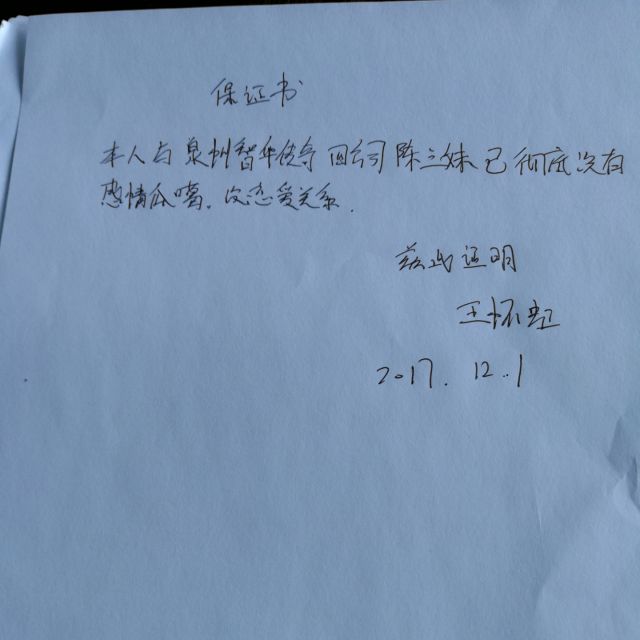 保证书
本人与泉州智华传 公司陈三妹已彻底没有
感情瓜噶，没恋爱关系.
兹此证明
王怀
2017.12.1